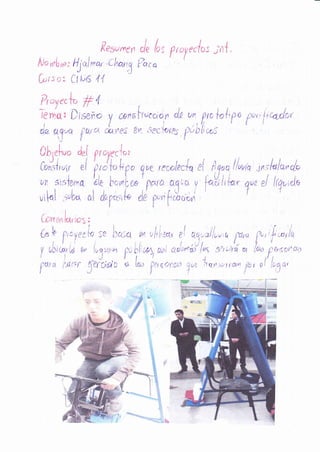 Resumen de los proyectos Int.
Nombre: Hjalmar Chang Paca
Curso: CINS 11
Proyecto #1
Tema: Diseño y construcción de un prototipo purificador
de agua para aves en sectores públicos
Objetivo del proyecto:
Construir el prototipo que recolecta el Agua lluvia instalando
un sistema de bombeo para agua y facilitar que el líquido
vital suba al deposito de purificación
Comentarios:
Este proyecto se basa en utilizar el agua lluvia para purificarla
y ubicarla en lugares publicos, así además les servirá a las personas
para hacer ejercicio a las personas que transitaran por el lugar